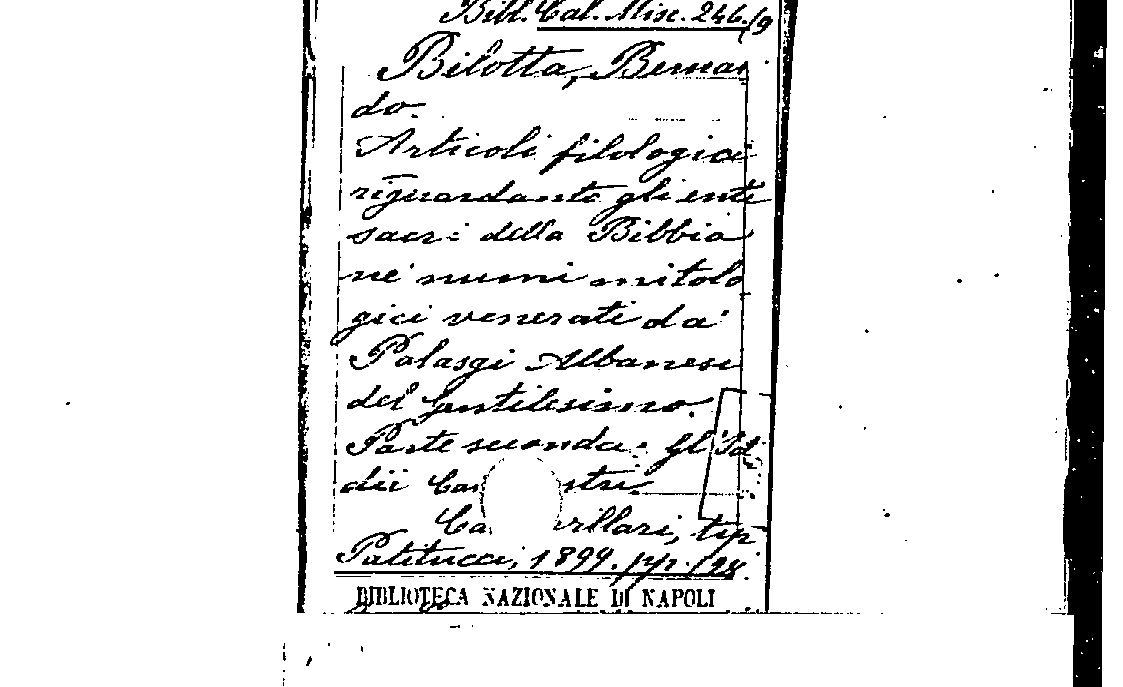 Bibl. Cal. Misc. 246/9
Bilotta, Bernar
do.
Articoli filologici
riguardante gli enti
sacri della Bibbia
ne' numi mitolo
gici venerati da'
Palasgi Albanesi
del Gentilesimo.
Parte seconda: Gl'Id
dii
tip
Patitucci, 1899. pp. 198.
BIBLIOTECA NAZIONALE DI NAPOLI